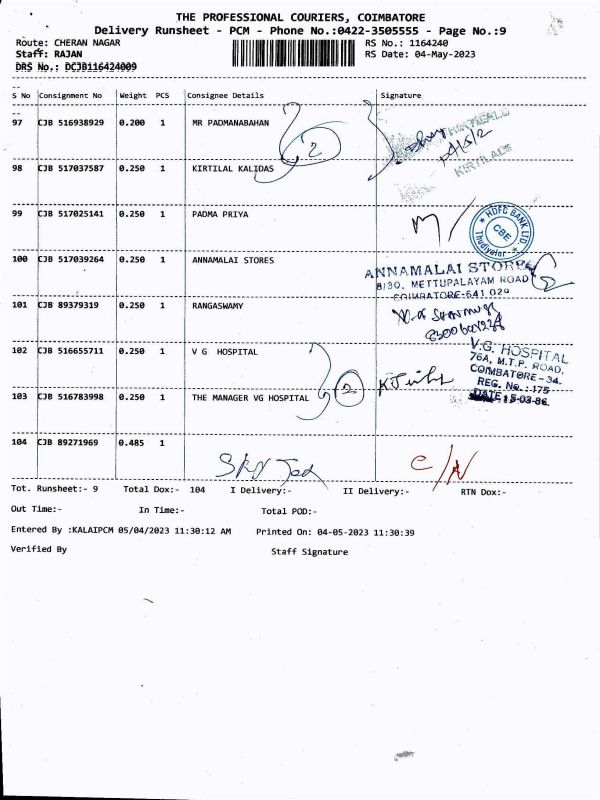 THE PROFESSIONAL COURIERS, COIMBATORE
Delivery Runsheet - PCM - Phone No.:0422-3505555 - Page No.:9
Route: CHERAN NAGAR RS No.: 1164240
Staff: RAJAN RS Date: 04-May-2023
DRS No.: DCJB116424009
S No Consignment No Weight PCS Consignee Details Signature
97 CJB 516938929 0.200 1 MR PADMANABAHAN
2
98 CJB 517037587 0.250 1 KIRTILAL KALIDAS
KIRTILALS
99 CJB 517025141 0.250 1 PADMA PRIYA
HDFC BANK LTD
CBE
Thudiyalur
100 CJB 517039264 0.250 1 ANNAMALAI STORES
ANNAMALAI STORES
8/30, METTUPALAYAM ROAD
COIMBATORE-641 029
101 CJB 89379319 0.250 1 RANGASWAMY
102 CJB 516655711 0.250 1 V G HOSPITAL
V.G. HOSPITAL
76A, M.T.P. ROAD,
COIMBATORE - 34.
REG. No. : 175
DATE : 15-03-86
2
103 CJB 516783998 0.250 1 THE MANAGER VG HOSPITAL
104 CJB 89271969 0.485 1
C/N
Tot. Runsheet:- 9 Total Dox:- 104 I Delivery:- II Delivery:- RTN Dox:-
Out Time:- In Time:- Total POD:-
Entered By :KALAIPCM 05/04/2023 11:30:12 AM Printed On: 04-05-2023 11:30:39
Verified By Staff Signature